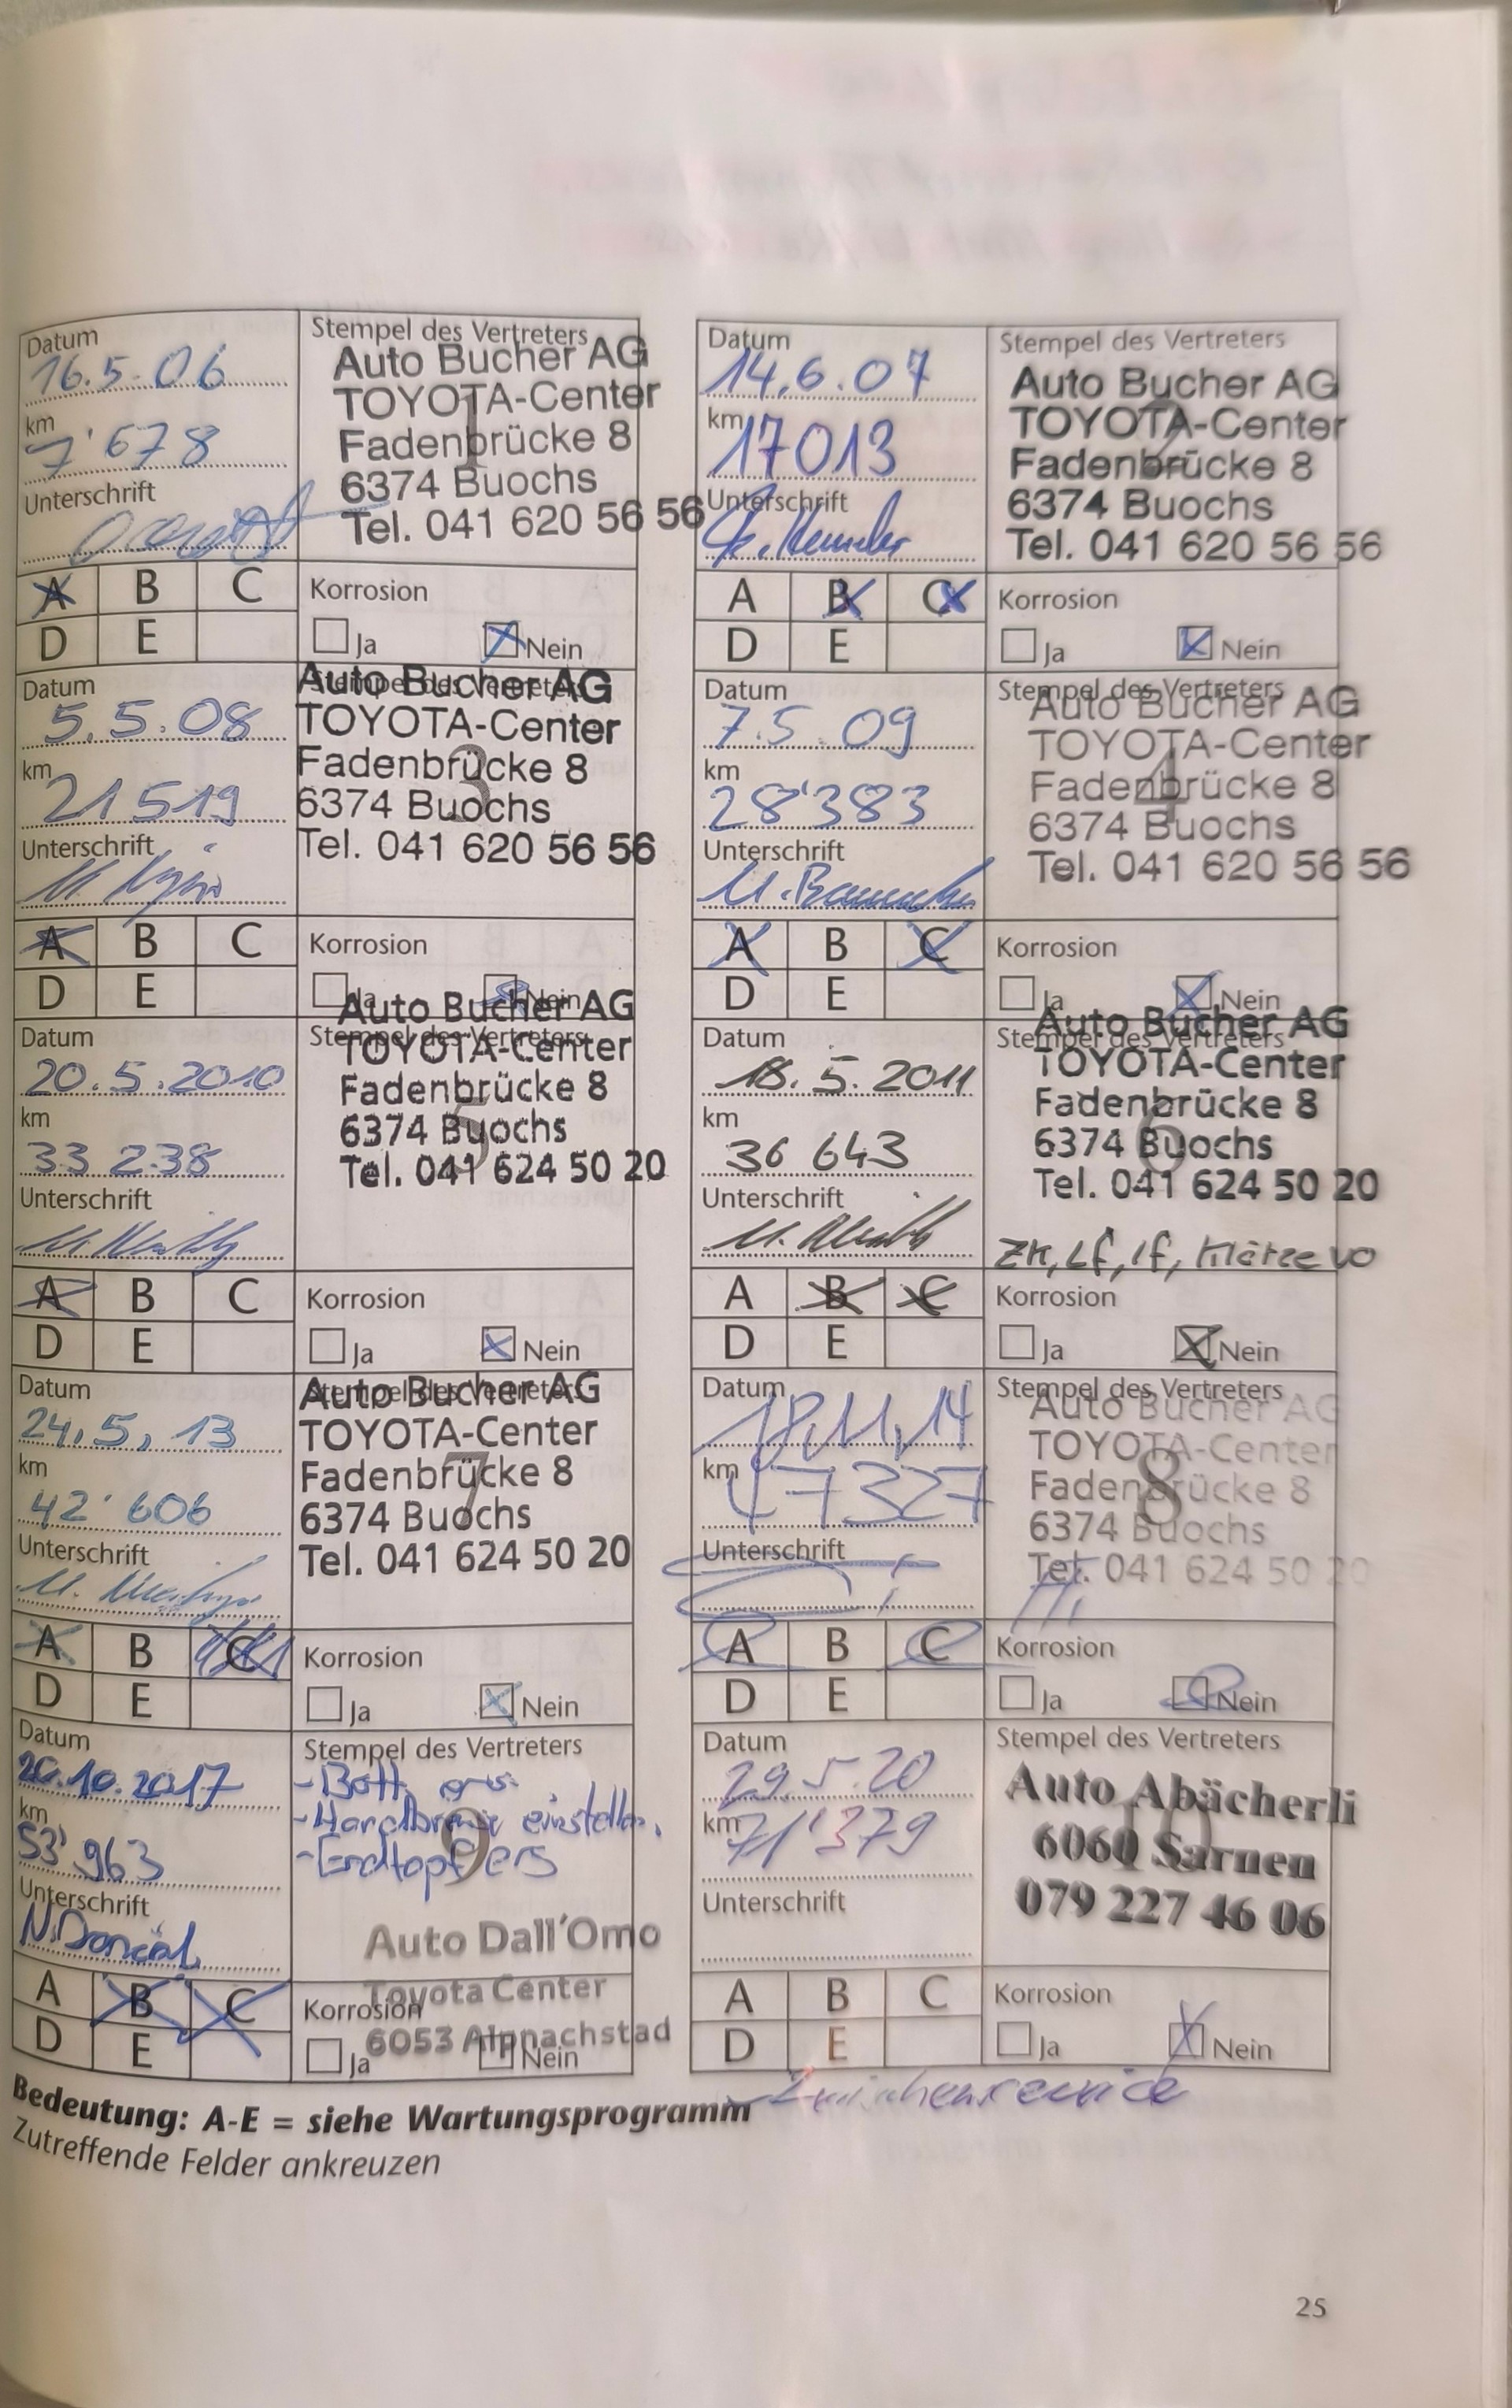 Datum
16.5.06
km
7'678
Unterschrift
Stempel des Vertreters
1
Auto Bucher AG
TOYOTA-Center
Fadenbrücke 8
6374 Buochs
Tel. 041 620 56 56
A B C
D E
Korrosion
Ja Nein
Datum
14.6.07
km
17013
Unterschrift
Stempel des Vertreters
2
Auto Bucher AG
TOYOTA-Center
Fadenbrücke 8
6374 Buochs
Tel. 041 620 56 56
A B C
D E
Korrosion
Ja Nein
Datum
5.5.08
km
21519
Unterschrift
Stempel des Vertreters
3
Auto Bucher AG
TOYOTA-Center
Fadenbrücke 8
6374 Buochs
Tel. 041 620 56 56
A B C
D E
Korrosion
Ja Nein
Datum
7.5.09
km
28'383
Unterschrift
Stempel des Vertreters
4
Auto Bucher AG
TOYOTA-Center
Fadenbrücke 8
6374 Buochs
Tel. 041 620 56 56
A B C
D E
Korrosion
Ja Nein
Datum
20.5.2010
km
33 238
Unterschrift
Stempel des Vertreters
5
Auto Bucher AG
TOYOTA-Center
Fadenbrücke 8
6374 Buochs
Tel. 041 624 50 20
A B C
D E
Korrosion
Ja Nein
Datum
18.5.2011
km
36 643
Unterschrift
Stempel des Vertreters
6
Auto Bucher AG
TOYOTA-Center
Fadenbrücke 8
6374 Buochs
Tel. 041 624 50 20
ZK, Lf, If, Klötze vo
A B C
D E
Korrosion
Ja Nein
Datum
24.5.13
km
42'606
Unterschrift
Stempel des Vertreters
7
Auto Bucher AG
TOYOTA-Center
Fadenbrücke 8
6374 Buochs
Tel. 041 624 50 20
A B C
D E
Korrosion
Ja Nein
Datum
18.11.14
km
47327
Unterschrift
Stempel des Vertreters
8
Auto Bucher AG
TOYOTA-Center
Fadenbrücke 8
6374 Buochs
Tel. 041 624 50 20
A B C
D E
Korrosion
Ja Nein
Datum
20.10.2017
km
53'963
Unterschrift
Stempel des Vertreters
9
- Batt. ers.
- Handbremse einstellen.
- Endtopf ers
Auto Dall'Omo
Toyota Center
6053 Alpnachstad
A B C
D E
Korrosion
Ja Nein
Datum
29.5.20
km
71'379
Unterschrift
Stempel des Vertreters
10
Auto Abächerli
6060 Sarnen
079 227 46 06
A B C
D E
Korrosion
Ja Nein
Zwischenservice
Bedeutung: A-E = siehe Wartungsprogramm
Zutreffende Felder ankreuzen
25